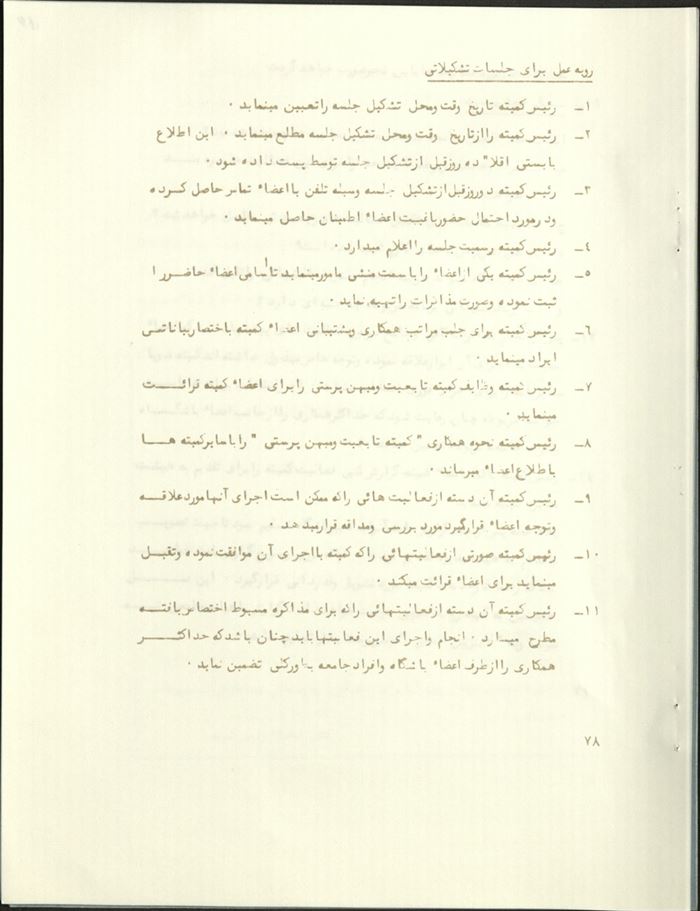 رویه عمل برای جلسات تشکیلاتی
۱- رئیس کمیته تاریخ وقت ومحل تشکیل جلسه راتعیین مینماید .
۲- رئیس کمیته راازتاریخ وقت ومحل تشکیل جلسه مطلع مینماید . این اطلاع
بایستی اقلا" ده روزقبل ازتشکیل جلسه توسط پست داده شود .
۳- رئیس کمیته دوروزقبل ازتشکیل جلسه وسیله تلفن بااعضاء تماس حاصل کرده
ودرمورد احتمال حضوریاغیبت اعضاء اطمینان حاصل مینماید .
٤- رئیس کمیته رسمیت جلسه رااعلام میدارد .
۵- رئیس کمیته یکی ازاعضاء راباسمت منشی مامورمینماید تااسامی اعضاء حاضررا
ثبت نموده وصورت مذاکرات راتهیه نماید .
٦- رئیس کمیته برای جلب مراتب همکاری وپشتیبانی اعضاء کمیته باختصاربیاناتی
ایراد مینماید .
۷- رئیس کمیته وظایف کمیته تابعیت ومیهن پرستی رابرای اعضاء کمیته قرائت
مینماید .
۸- رئیس کمیته نحوه همکاری " کمیته تابعیت ومیهن پرستی " راباسایرکمیته ها
باطلاع اعضاء میرساند .
۹- رئیس کمیته آن دسته ازفعالیت هائی راکه ممکن است اجرای آنهاموردعلاقه
وتوجه اعضاء قرارگیرد مورد بررسی ومداقه قرارمیدهد .
۱۰- رئیس کمیته صورتی ازفعالیتهائی راکه کمیته بااجرای آن موافقت نموده وتقبل
مینماید برای اعضاء قرائت میکند .
۱۱- رئیس کمیته آن دسته ازفعالیتهائی راکه برای مذاکره مبسوط اختصاص یافته
مطرح میدارد . انجام واجرای این فعالیتهابایدچنان باشدکه حداکثر
همکاری راازطرف اعضاء باشگاه وافراد جامعه بطورکلی تضمین نماید .
۷۸